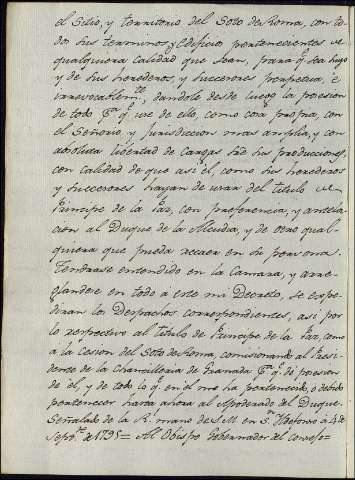 el Sitio, y territorio del Soto de Roma, con to-
dos sus terminos y Edificios pertenecientes de
qualquiera calidad que sean, para qe. sea suyo
y de sus herederos, y succesores perpetua, é
irrevocablemte., dandole desde luego la posesion
de todo pa. qe. use de ello, como cosa propia, con
el Señorio, y jurisdiccion mas amplia, y con
absoluta libertad de Cargas sre. sus producciones,
con calidad de que asi él, como sus herederos
y succesores hayan de usar del titulo de
Principe de la Paz, con preferencia, y antela-
cion al Duque de la Alcudia, y de otro qual-
quiera que pueda recaer en su persona.
Tendrase entendido en la Camara, y arre-
glandose en todo á este mi Decreto, se expe-
diran los Despachos correspondientes, asi por
lo respectivo al titulo de Principe de la Paz, como
á la cesion del Soto de Roma, comisionando al Presi-
dente de la Chancilleria de Granada pa. qe. dé posesion
de él, y de todo lo qe. en el me ha pertenecido, ó debido
pertenecer hasta ahora al Apoderado del Duque.
Señalado de la R. mano de S.M. en Sn. Ildefonso á 4 de
Septre. de 1795 = Al Obispo Gobernador del Consejo =